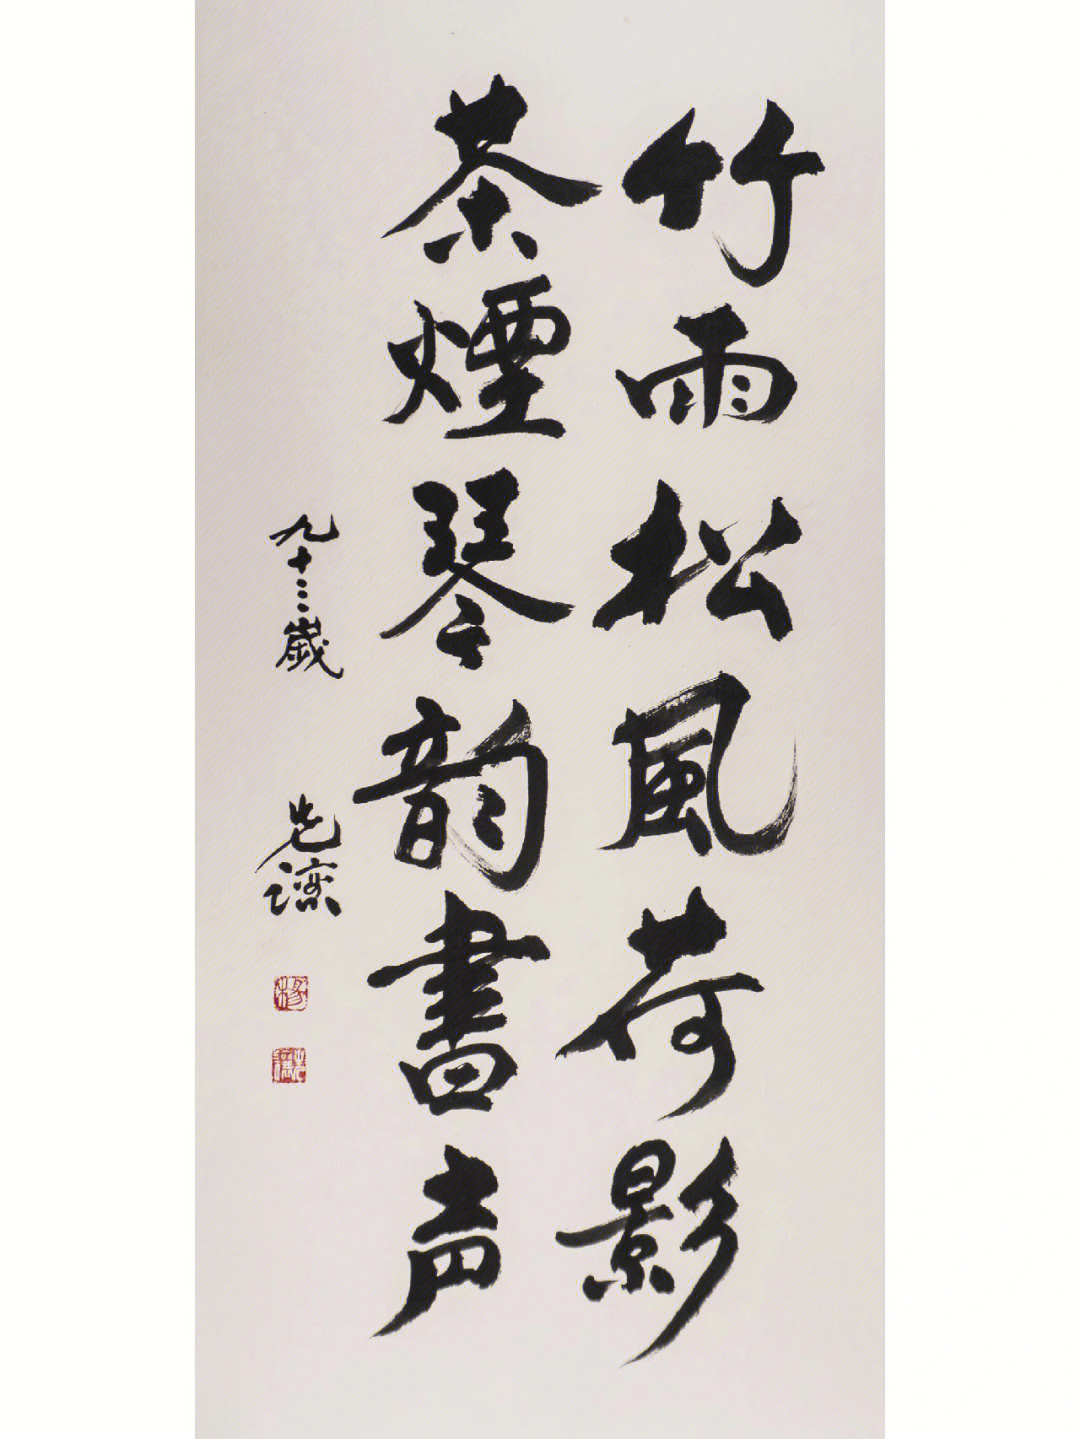 竹雨松風荷影
茶煙琴韵書声
九十三歲